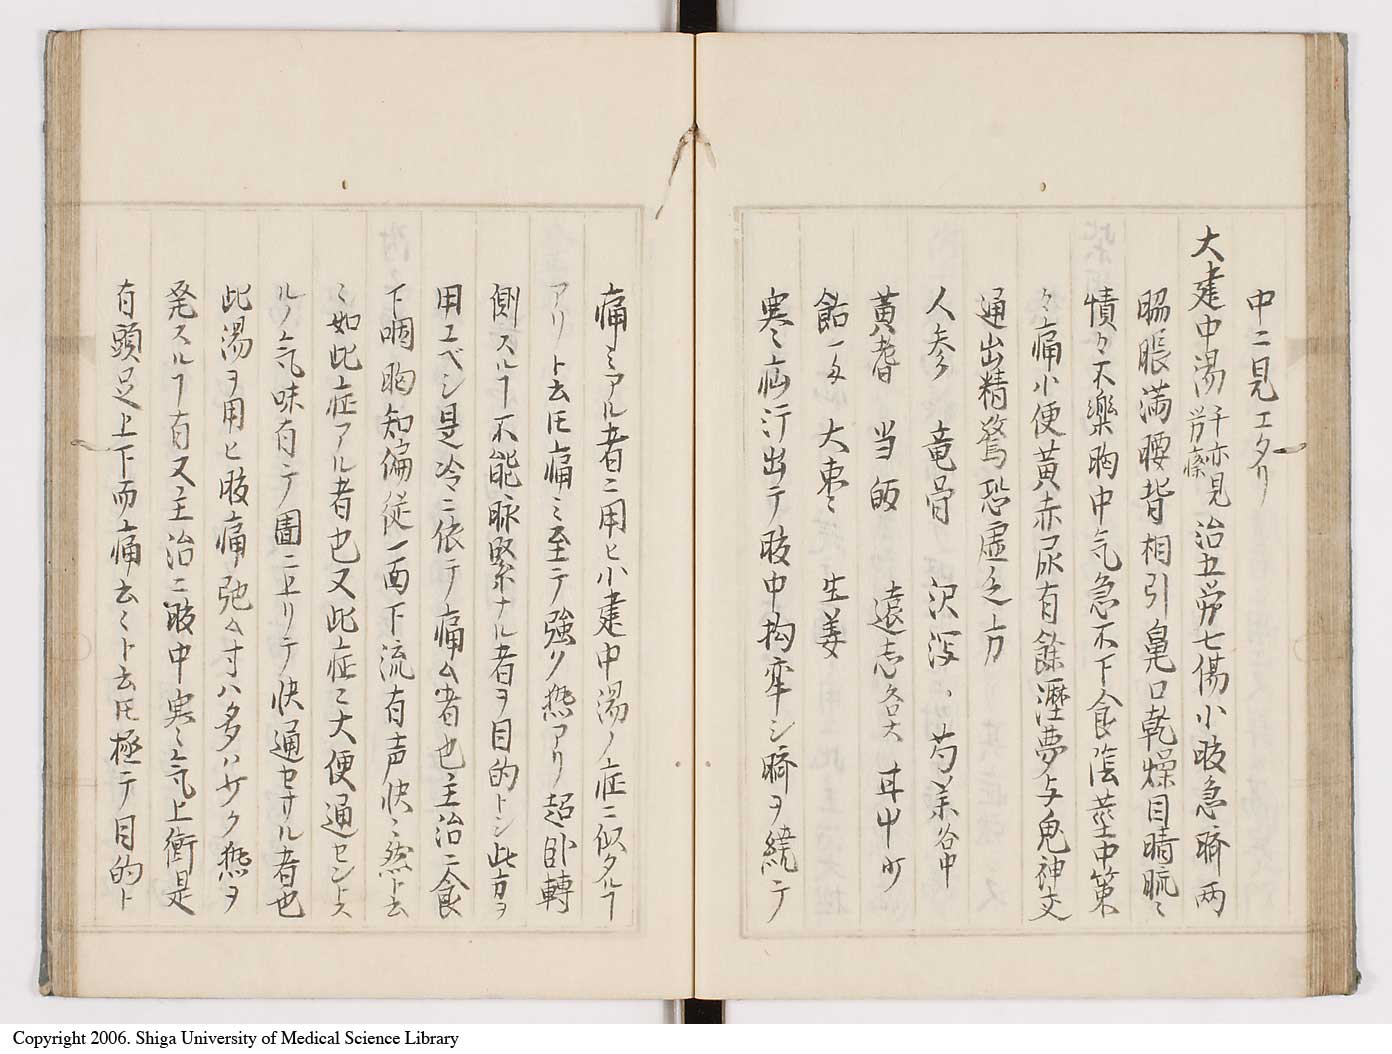 中ニ見エタリ
大建中湯 千亦見労瘵 治五労七傷小腹急臍両
脇脹満腰背相引鼻口乾燥目䀮々
憒々不樂胸中気急不下食陰莖中策
々痛小便黄赤尿有餘瀝夢与鬼神交
通出精驚恐虚乏方
人参 竜骨 沢瀉 芍薬各中
黄耆 当皈 遠志各大 甘中少
飴 大棗 生姜
寒疝汗出テ腹中拘牽シ臍ヲ繞テ
痛ミアル者ニ用ヒ小建中湯ノ症ニ似タルヿ
アリト云𪜈痛ミ至テ強ク熱アリ起卧轉
側スルヿ不能脉緊ナル者ヲ目的トシ此方ヲ
用ユベシ是冷ニ依テ痛ム者也主治ニ食
下咽胸知偏従一面下流有声决々然ト云
如此症アル者也又此症ニ大便通セントス
ルノ気味有テ圊ニ上リテ快通セサル者也
此湯ヲ用ヒ腹痛弛ム寸ハ多ハサク熱ヲ
発スルヿ有又主治ニ腹中寒気上衝是
有頭足上下而痛云々ト云𪜈極テ目的ト
Copyright 2006. Shiga University of Medical Science Library